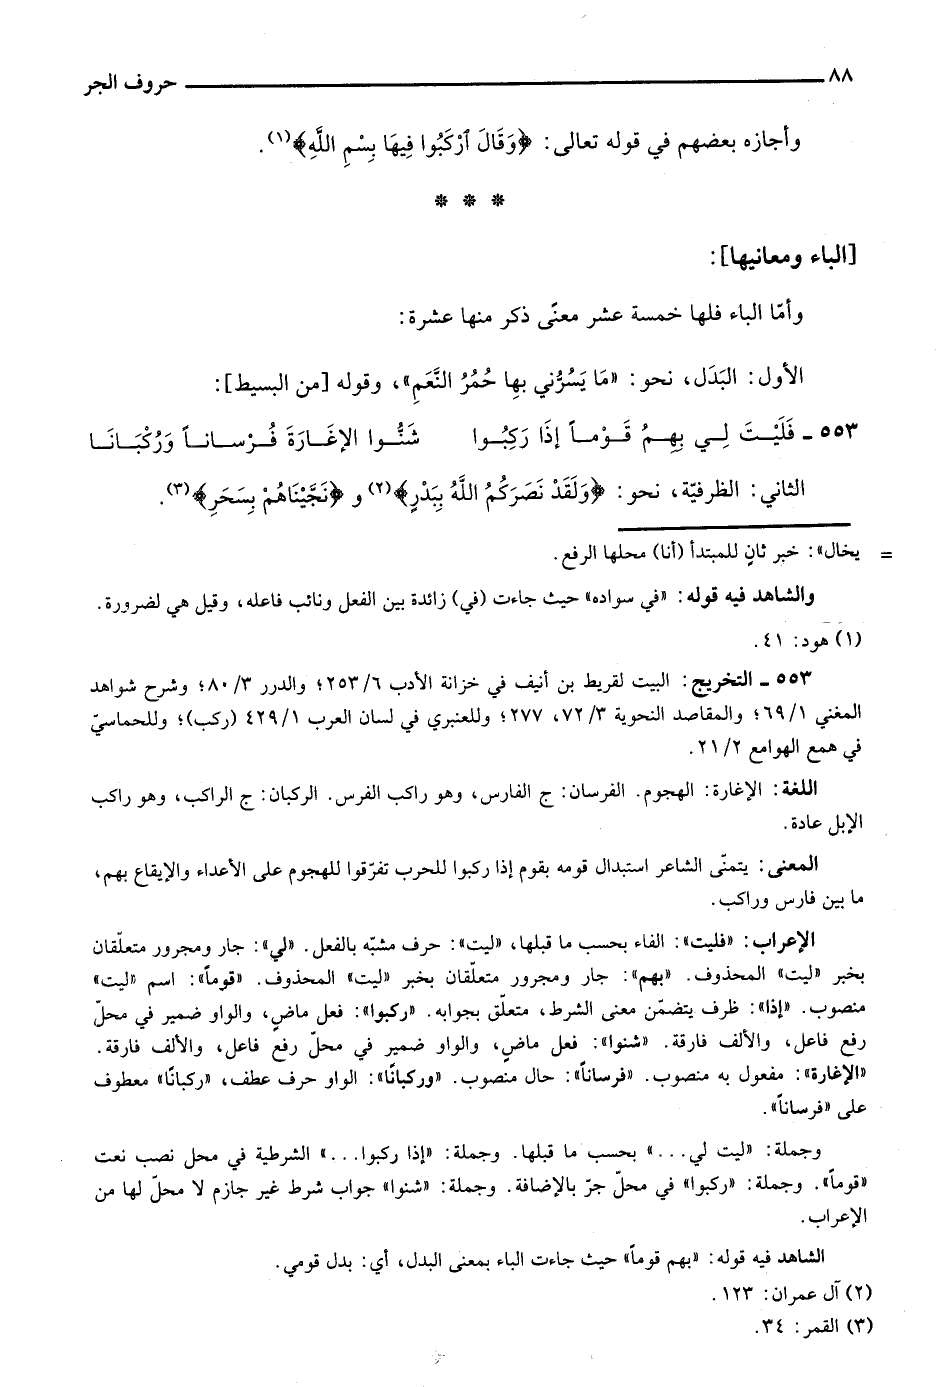 ٨٨ حروف الجر
وأجازه بعضهم في قوله تعالى: ﴿وَقَالَ ٱرْكَبُوا فِيهَا بِسْمِ اللَّهِ﴾(١).
* * *
[الباء ومعانيها]:
وأمّا الباء فلها خمسة عشر معنًى ذكر منها عشرة:
الأول: البَدَل، نحو: «مَا يَسُرُّني بها حُمُرُ النَّعَمِ»، وقوله [من البسيط]:
٥٥٣ ـ فَلَيْتَ لِي بِهِمُ قَوْماً إذَا رَكِبُوا شَنُّوا الإغَارَةَ فُرْسَاناً وَرُكْبَانَا
الثاني: الظرفيّة، نحو: ﴿وَلَقَدْ نَصَرَكُمُ اللَّهُ بِبَدْرٍ﴾(٢) و ﴿نَجَّيْنَاهُمْ بِسَحَرٍ﴾(٣).
= يخال»: خبر ثانٍ للمبتدأ (أنا) محلها الرفع.
والشاهد فيه قوله: «في سواده» حيث جاءت (في) زائدة بين الفعل ونائب فاعله، وقيل هي لضرورة.
(١) هود: ٤١.
٥٥٣ ـ التخريج: البيت لقريط بن أنيف في خزانة الأدب ٢٥٣/٦؛ والدرر ٨٠/٣؛ وشرح شواهد
المغني ٦٩/١؛ والمقاصد النحوية ٧٢/٣، ٢٧٧؛ وللعنبري في لسان العرب ٤٢٩/١ (ركب)؛ وللحماسيّ
في همع الهوامع ٢١/٢.
اللغة: الإغارة: الهجوم. الفرسان: ج الفارس، وهو راكب الفرس. الركبان: ج الراكب، وهو راكب
الإبل عادة.
المعنى: يتمنّى الشاعر استبدال قومه بقوم إذا ركبوا للحرب تفرّقوا للهجوم على الأعداء والإيقاع بهم،
ما بين فارس وراكب.
الإعراب: «فليت»: الفاء بحسب ما قبلها، «ليت»: حرف مشبّه بالفعل. «لي»: جار ومجرور متعلّقان
بخبر «ليت» المحذوف. «بهم»: جار ومجرور متعلّقان بخبر «ليت» المحذوف. «قوماً»: اسم «ليت»
منصوب. «إذا»: ظرف يتضمّن معنى الشرط، متعلّق بجوابه. «ركبوا»: فعل ماضٍ، والواو ضمير في محلّ
رفع فاعل، والألف فارقة. «شنوا»: فعل ماضٍ، والواو ضمير في محلّ رفع فاعل، والألف فارقة.
«الإغارة»: مفعول به منصوب. «فرساناً»: حال منصوب. «وركبانًا»: الواو حرف عطف، «ركبانًا» معطوف
على «فرساناً».
وجملة: «ليت لي...» بحسب ما قبلها. وجملة: «إذا ركبوا...» الشرطية في محل نصب نعت
«قوماً». وجملة: «ركبوا» في محلّ جرّ بالإضافة. وجملة: «شنوا» جواب شرط غير جازم لا محلّ لها من
الإعراب.
الشاهد فيه قوله: «بهم قوماً» حيث جاءت الباء بمعنى البدل، أي: بدل قومي.
(٢) آل عمران: ١٢٣.
(٣) القمر: ٣٤.